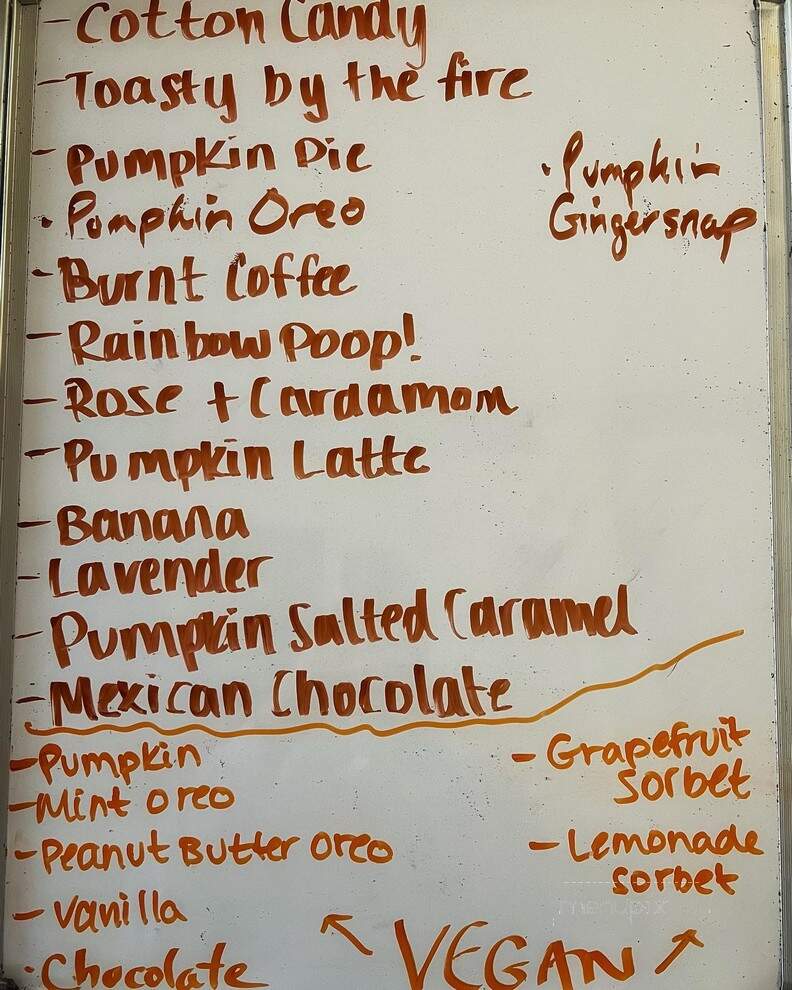 - Cotton Candy
- Toasty by the fire
- Pumpkin Pie
· Pumpkin Oreo
· Pumpkin
Gingersnap
- Burnt Coffee
- Rainbow Poop!
- Rose + Cardamom
- Pumpkin Latte
- Banana
- Lavender
- Pumpkin Salted Caramel
- Mexican Chocolate
- Pumpkin
- Mint oreo
- Peanut Butter Oreo
- Vanilla
· Chocolate
- Grapefruit
sorbet
- Lemonade
sorbet
menupix
VEGAN